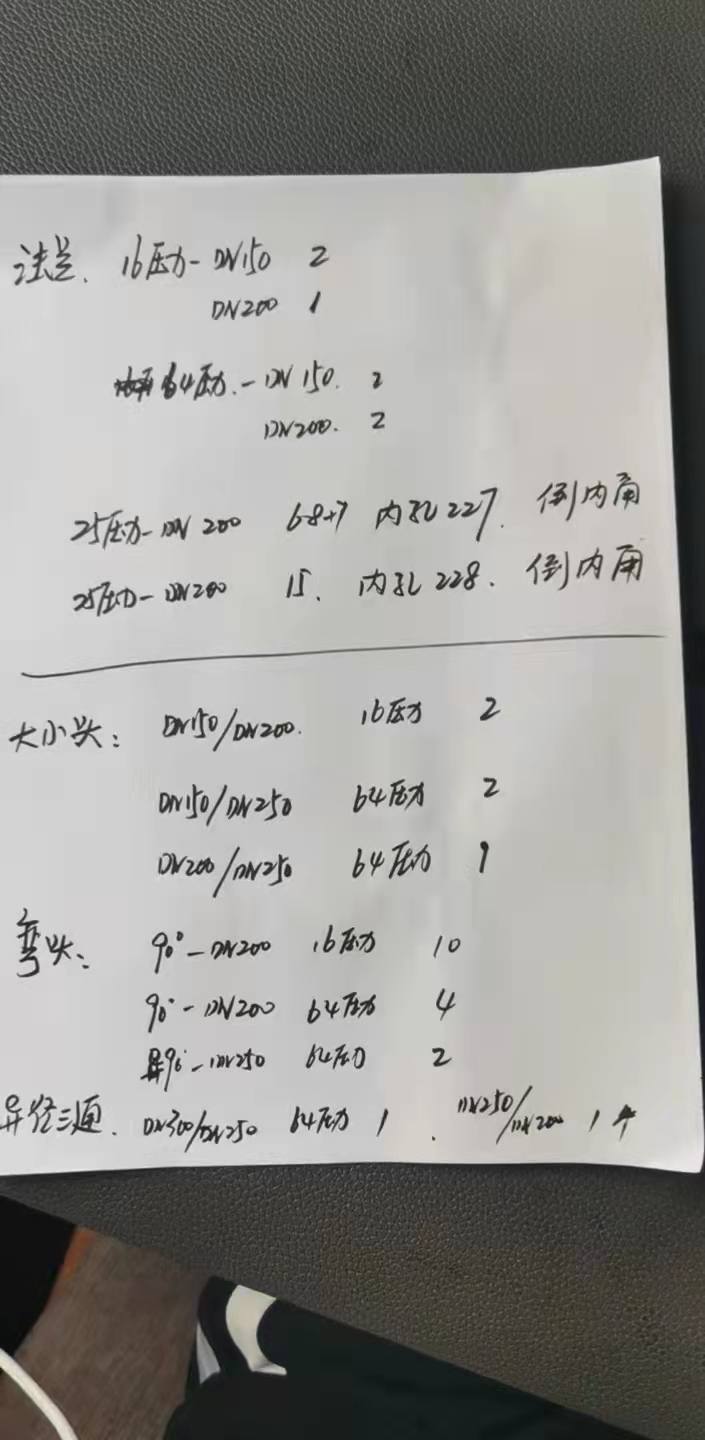 法兰. 16压力-DN150 2
DN200 1
64压力.-DN150. 2
DN200. 2
25压力-DN200 68+7 内孔227. 倒内角
25压力-DN200 15. 内孔228. 倒内角
大小头: DN150/DN200. 16压力 2
DN150/DN250 64压力 2
DN200/DN250 64压力 1
弯头: 90°-DN200 16压力 10
90°-DN200 64压力 4
90°-DN250 64压力 2
异径三通. DN300/DN250 64压力 1 . DN250/DN200 1个